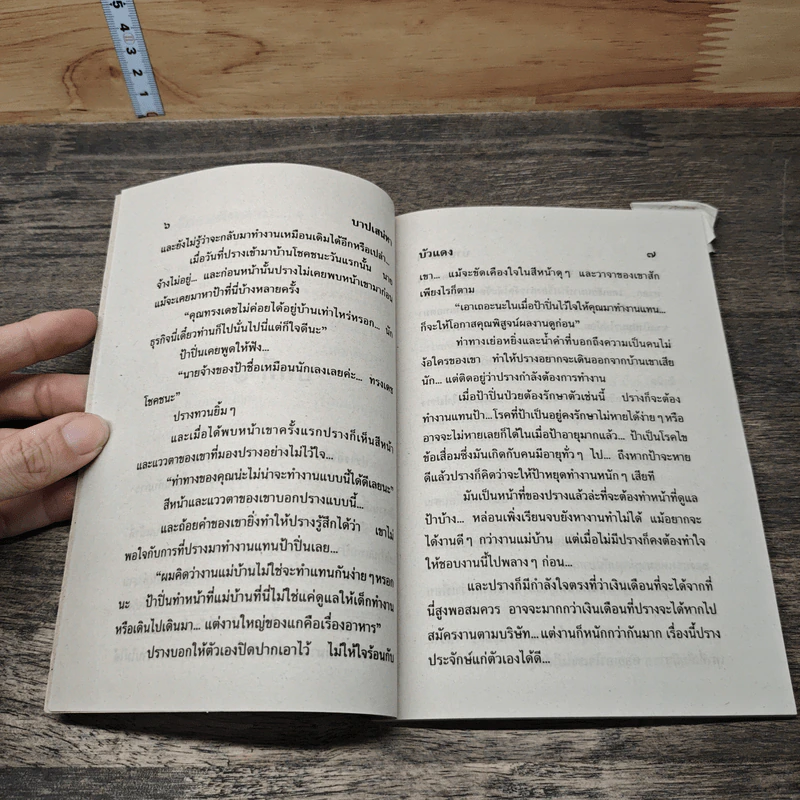 5
4
3
2
1
๖ บาปเสน่หา
และยังไม่รู้ว่าจะกลับมาทำงานเหมือนเดิมได้อีกหรือเปล่า...
เมื่อวันที่ปรางเข้ามาบ้านโชคชนะวันแรกนั้น นาย
จ้างไม่อยู่... และก่อนหน้านั้นปรางไม่เคยพบหน้าเขามาก่อน
แม้จะเคยมาหาป้าที่นี่บ้างหลายครั้ง
“คุณทรงเดชไม่ค่อยได้อยู่บ้านเท่าไหร่หรอก... นัก
ธุรกิจนี่เดี๋ยวท่านก็ไปนั่นไปนี่แต่ก็ใจดีนะ”
ป้าปิ่นเคยพูดให้ฟัง...
“นายจ้างของป้าชื่อเหมือนนักเลงเลยค่ะ... ทรงเดช
โชคชนะ”
ปรางทวนยิ้มๆ
และเมื่อได้พบหน้าเขาครั้งแรกปรางก็เห็นสีหน้า
และแววตาของเขาที่มองปรางอย่างไม่ไว้ใจ...
“ท่าทางของคุณน่ะไม่น่าจะทำงานแบบนี้ได้ดีเลยนะ”
สีหน้าและแววตาของเขาบอกปรางแบบนี้...
และถ้อยคำของเขายิ่งทำให้ปรางรู้สึกได้ว่า เขาไม่
พอใจกับการที่ปรางมาทำงานแทนป้าปิ่นเลย...
“ผมคิดว่างานแม่บ้านไม่ใช่จะทำแทนกันง่ายๆหรอก
นะ ป้าปิ่นทำหน้าที่แม่บ้านที่นี่ไม่ใช่แค่ดูแลให้เด็กทำงาน
หรือเดินไปเดินมา... แต่งานใหญ่ของแกคือเรื่องอาหาร”
ปรางบอกให้ตัวเองปิดปากเอาไว้ ไม่ให้ใจร้อนกับ
บัวแดง ๗
เขา... แม้จะขัดเคืองใจในสีหน้าดุๆ และวาจาของเขาสัก
เพียงไรก็ตาม
“เอาเถอะนะในเมื่อป้าปิ่นไว้ใจให้คุณมาทำงานแทน...
ก็จะให้โอกาสคุณพิสูจน์ผลงานดูก่อน”
ท่าทางเย่อหยิ่งและน้ำคำที่บอกถึงความเป็นคนไม่
ง้อใครของเขา ทำให้ปรางอยากจะเดินออกจากบ้านเขาเสีย
นัก... แต่ติดอยู่ว่าปรางกำลังต้องการทำงาน
เมื่อป้าปิ่นป่วยต้องรักษาตัวเช่นนี้ ปรางก็จะต้อง
ทำงานแทนป้า...โรคที่ป้าเป็นอยู่คงรักษาไม่หายได้ง่ายๆหรือ
อาจจะไม่หายเลยก็ได้ในเมื่อป้าอายุมากแล้ว... ป้าเป็นโรคไข
ข้อเสื่อมซึ่งมันเกิดกับคนมีอายุทั่วๆ ไป... ถึงหากป้าจะหาย
ดีแล้วปรางก็คิดว่าจะให้ป้าหยุดทำงานหนักๆ เสียที
มันเป็นหน้าที่ของปรางแล้วล่ะที่จะต้องทำหน้าที่ดูแล
ป้าบ้าง... หล่อนเพิ่งเรียนจบยังหางานทำไม่ได้ แม้อยากจะ
ได้งานดีๆ กว่างานแม่บ้าน แต่เมื่อไม่มีปรางก็คงต้องทำใจ
ให้ชอบงานนี้ไปพลางๆ ก่อน...
และปรางก็มีกำลังใจตรงที่ว่าเงินเดือนที่จะได้จากที่
นี่สูงพอสมควร อาจจะมากกว่าเงินเดือนที่ปรางจะได้หากไป
สมัครงานตามบริษัท...แต่งานก็หนักกว่ากันมาก เรื่องนี้ปราง
ประจักษ์แก่ตัวเองได้ดี...